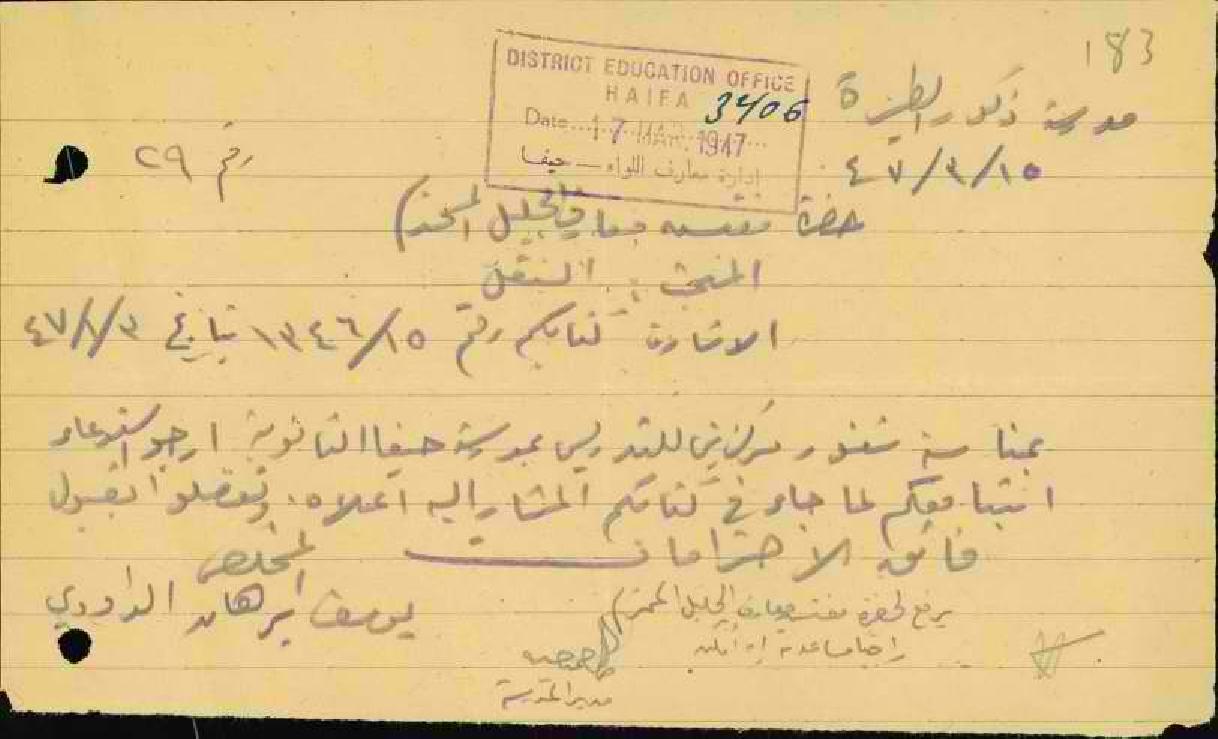 183
DISTRICT EDUCATION OFFICE
HAIFA
3406
Date 17 MAR. 1947
إدارة معارف اللواء — حيفا
مدرسة ذكور الطيرة
٤٧/٣/١٥
رقم ٢٩
حضرة مفتش معارف الجليل المحترم
المبحث : النقل
الاشارة كتابكم رقم ١٣٤٦/١٥ بتاريخ ٤٧/١/٣
بمناسبة شغور مركزين للتدريس بمدرسة حيفا الثانوية ارجو استرعاء
انتباهكم لما جاء في كتابكم المشار اليه اعلاه. وتفضلوا بقبول
فائق الاحترامات
المخلص
يوسف ابرهان الداودي
يرفع لحضرة مفتش معارف الجليل المحترم
راجيا مساعدته إن أمكن
مدير المدرسة